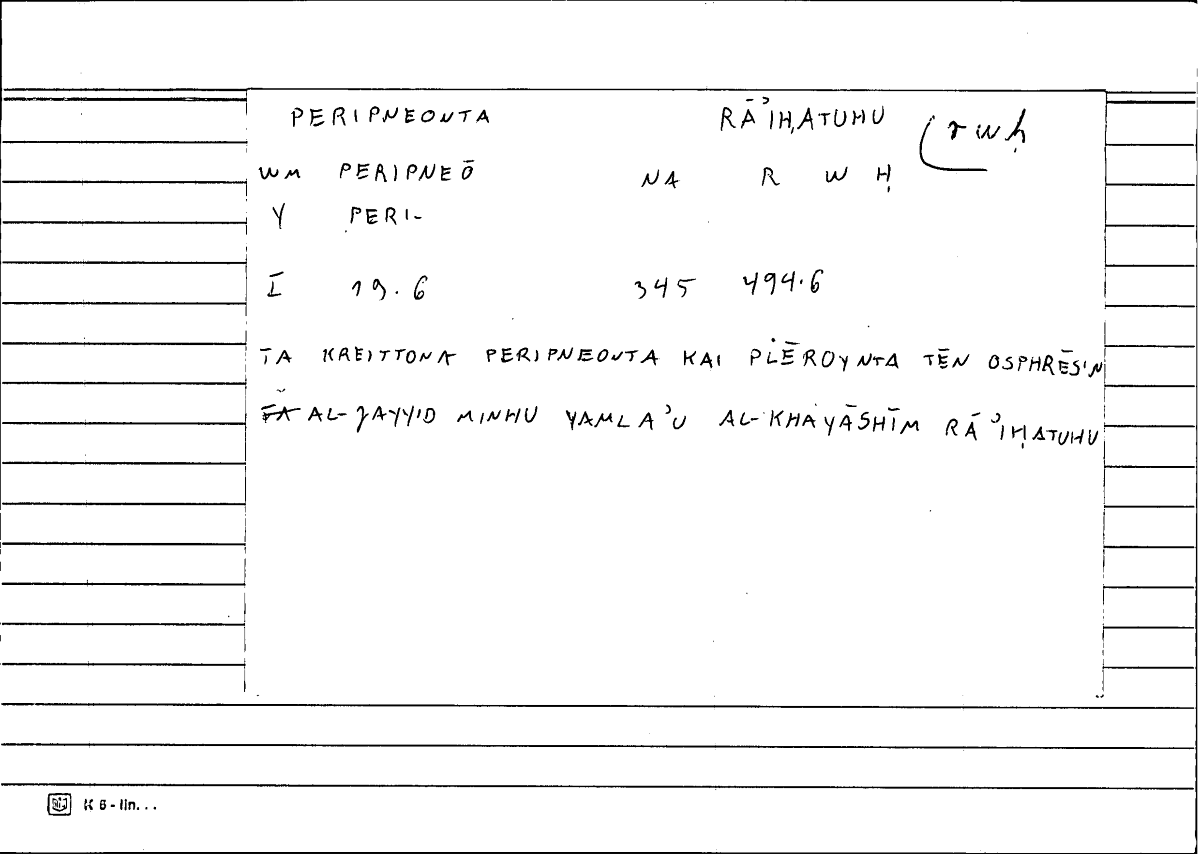 PERIPNEONTA RĀʾIḤATUHU (r w ḥ
WM PERIPNEŌ NA R W Ḥ
Y PERI-
I 19.6 345 494.6
TA KREITTONA PERIPNEONTA KAI PLĒROYNTA TĒN OSPHRĒSIN
AL-JAYYID MINHU YAMLAʾU AL-KHAYĀSHĪM RĀʾIḤATUHU
K 6 - lin...